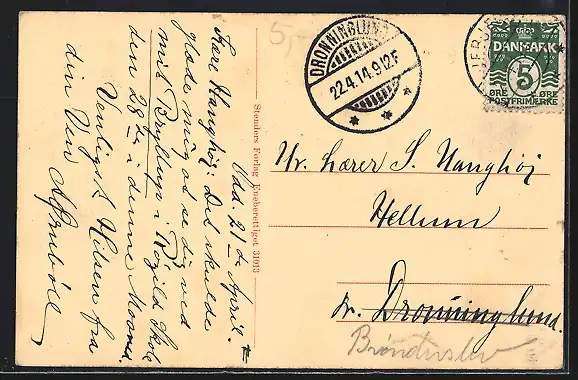 5,-
DRONNINGLUND
22.4.14.9 12F
DANMARK
5
ØRE ØRE
POSTFRIMÆRKE
Stenders Forlag Eneberettiget 31013
d. 21de April.
Kære Nanghøj! Det skulde
glæde mig at se dig ved
mit Bryllup i Skole
den 28de i denne Maaned.
Venligst Hilsen fra
din Ven
Hr. Lærer S. Nanghøj
Hellum
pr. Dronninglund.
Brønderslev